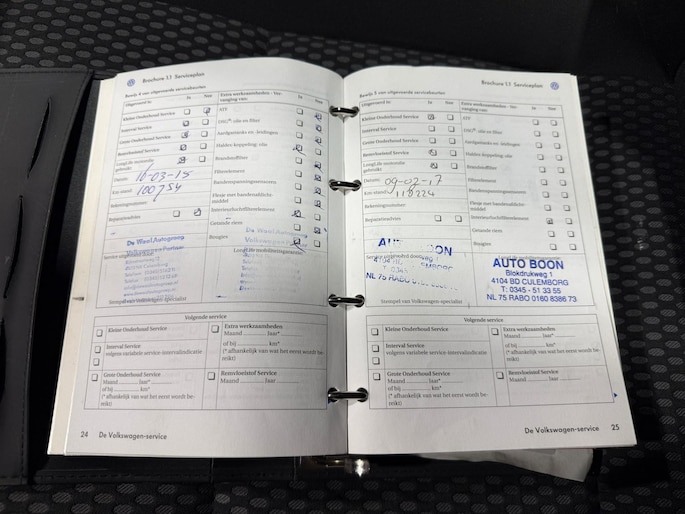 Brochure 1.1 Serviceplan
Bewijs 4 van uitgevoerde servicebeurten
Uitgevoerd in: Ja Nee
Kleine Onderhoud Service
Interval Service
Grote Onderhoud Service
Remvloeistof Service
LongLife motorolie
gebruikt:
Datum: 16-03-15
Km-stand: 100754
Rekeningnummer:
Reparatieadvies
Extra werkzaamheden - Ver-
vanging van: Ja Nee
ATF
DSG®-olie en filter
Aandrijfriem
Haldex-koppeling: olie
Brandstoffilter
Filterelement
Bandenspanningssensoren
Flesje met bandenafdicht-
middel
Interieurluchtfilterelement
Getande riem
Bougies
De Waal Autogroep
Service uitgevoerd door:
De Waal Autogroep
LongLife mobiliteitsgarantie
Stempel van Volkswagen-specialist
Volgende service
Kleine Onderhoud Service
Interval Service
volgens variabele service-intervalindicatie
Grote Onderhoud Service
Maand ........ Jaar*
of bij ........ km*
(* afhankelijk van wat het eerst wordt be-
reikt)
Extra werkzaamheden
Maand ........ Jaar*
of bij ........ km*
(* afhankelijk van wat het eerst wordt be-
reikt)
Remvloeistof Service
Maand ........ Jaar
24 De Volkswagen-service
Brochure 1.1 Serviceplan
Bewijs 5 van uitgevoerde servicebeurten
Uitgevoerd in: Ja Nee
Kleine Onderhoud Service
Interval Service
Grote Onderhoud Service
Remvloeistof Service
LongLife motorolie
gebruikt:
Datum: 09-02-17
Km-stand: 118224
Rekeningnummer:
Reparatieadvies
Extra werkzaamheden - Ver-
vanging van: Ja Nee
ATF
DSG®-olie en filter
Haldex-koppeling: olie
Brandstoffilter
Filterelement
Bandenspanningssensoren
Flesje met bandenafdicht-
middel
Interieurluchtfilterelement
Getande riem
Bougies
AUTO BOON
Service uitgevoerd door:
NL 75 RABO
AUTO BOON
Blokdrukweg 1
4104 BD CULEMBORG
T: 0345 - 51 33 55
NL 75 RABO 0160 8386 73
Stempel van Volkswagen-specialist
Volgende service
Kleine Onderhoud Service
Interval Service
volgens variabele service-intervalindicatie
Grote Onderhoud Service
Maand ........ Jaar*
of bij ........ km*
(* afhankelijk van wat het eerst wordt be-
reikt)
Extra werkzaamheden
Maand ........ Jaar*
of bij ........ km*
(* afhankelijk van wat het eerst wordt be-
reikt)
Remvloeistof Service
Maand ........ Jaar
De Volkswagen-service 25